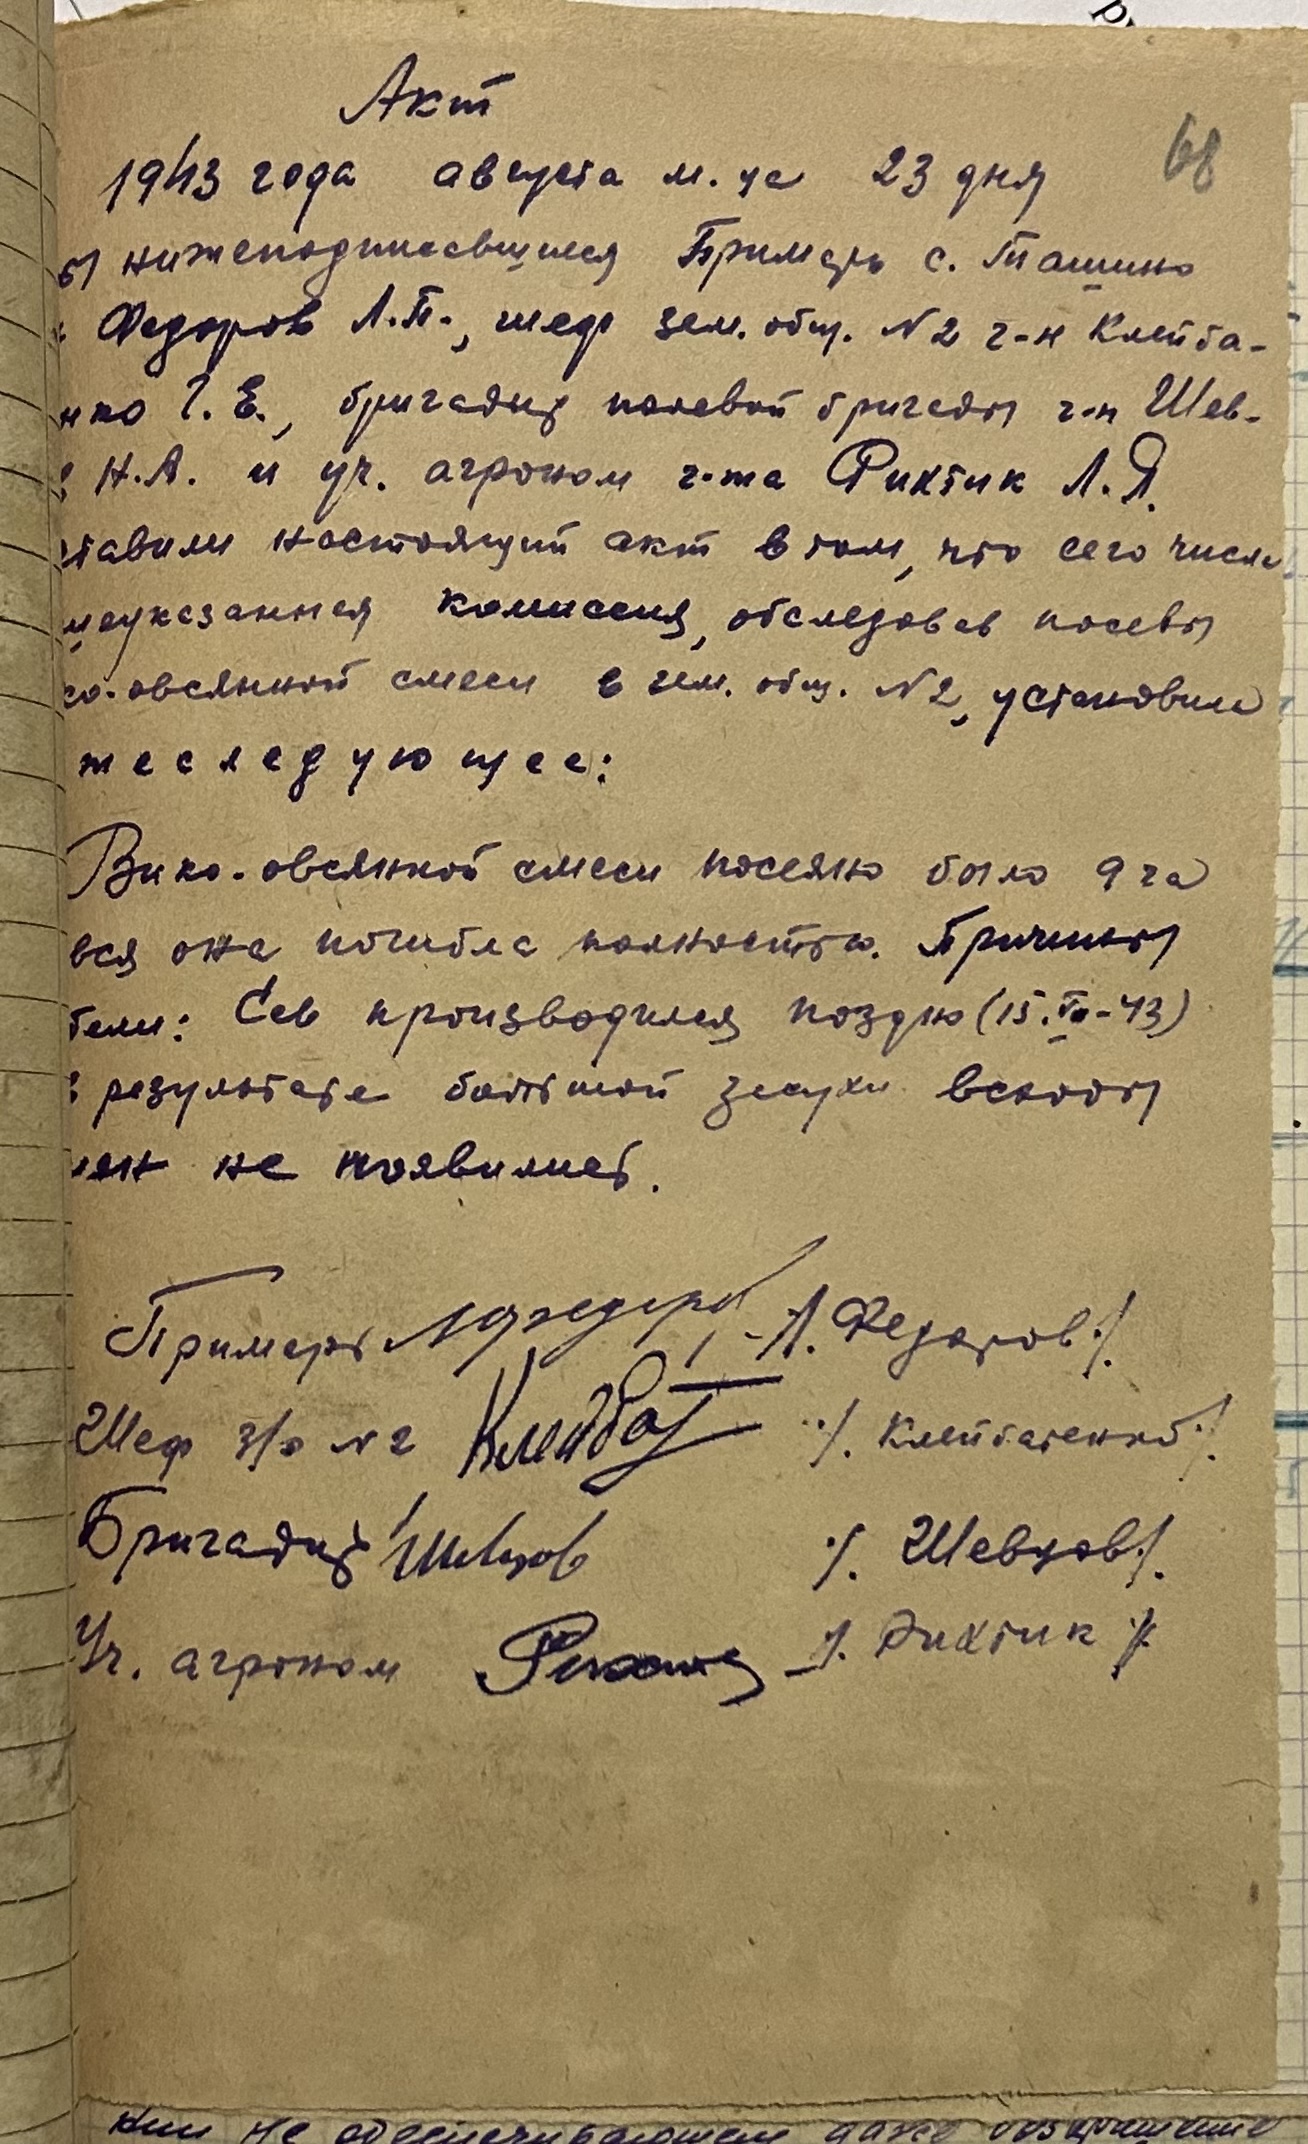 Акт
68
1943 года августа м-ца 23 дня
ы нижеподписавшиеся Примарь с. Ташино
Федоров Л.П., шеф зем. общ. N2 г-н Клейба-
нко Г. Е., бригадир полевой бригады г-н Шев-
Н.А. и уч. агроном г-жа Фихтик Л.Я.
ставили настоящий акт в том, что сего числа
меуказанная комиссия, обследовав посевы
ко-овсянной смеси в зем. общ. N2, установила
жеследующее:
Вико-овсянной смеси посеяно было 9 га
вся она погибла полностью. Причины
бели: Сев производился поздно (15.-43)
результате большой засухи всходы
не появились.
Примарь Л. Федоров /.
Шеф з/о N2 Клейба /. Клейбатенко /.
Бригадир Шевцов /. Шевцов /.
Уч. агроном /. Фихтик /.
не обеспечивающем даже